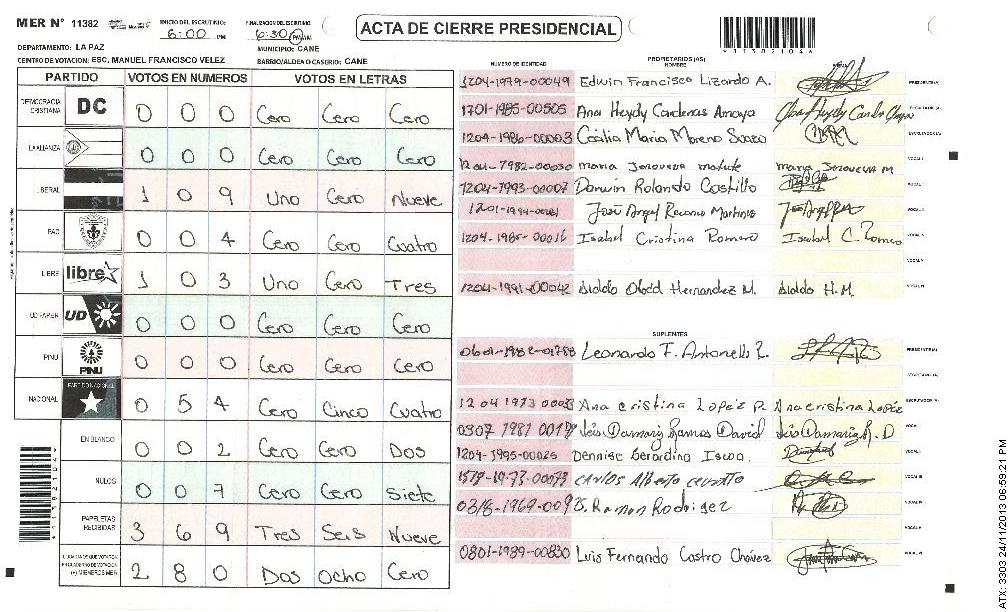 MER N° 11382
INICIO DEL ESCRUTINIO:
6:00 PM
FINALIZACION DEL ESCRUTINIO:
6:30 PM
ACTA DE CIERRE PRESIDENCIAL
DEPARTAMENTO: LA PAZ
MUNICIPIO: CANE
CENTRO DE VOTACION: ESC. MANUEL FRANCISCO VELEZ
BARRIO/ALDEA O CASERIO: CANE
PARTIDO VOTOS EN NUMEROS VOTOS EN LETRAS
DEMOCRACIA CRISTIANA DC 0 0 0 Cero Cero Cero
LA ALIANZA 0 0 0 Cero Cero Cero
LIBERAL 1 0 9 Uno Cero Nueve
PAC 0 0 4 Cero Cero Cuatro
LIBRE libre 1 0 3 Uno Cero Tres
UD FAPER UD 0 0 0 Cero Cero Cero
PINU PINU 0 0 0 Cero Cero Cero
NACIONAL PARTIDO NACIONAL 0 5 4 Cero Cinco Cuatro
EN BLANCO 0 0 2 Cero Cero Dos
NULOS 0 0 7 Cero Cero Siete
PAPELETAS RECIBIDAS 3 6 9 Tres Seis Nueve
CIUDADANOS QUE VOTARON EN CUADERNO DE VOTACION (+) MIEMBROS MER 2 8 0 Dos Ocho Cero
PROPIETARIOS (AS)
NUMERO DE IDENTIDAD NOMBRE
1204-1979-00049 Edwin Francisco Lizardo A. PRESIDENTE(A)
1701-1985-00505 Ana Heydy Cardenas Amaya SECRETARIO(A)
1204-1986-00003 Cecilia Maria Moreno Suazo ESCRUTADOR(A)
maria matute VOCAL I
1204-1993-00007 Darwin Rolando Castillo VOCAL
José Angel Martinez VOCAL
1204-1985-00016 Isabel Cristina Romero Isabel C. Romero VOCAL
VOCAL
1204-1991-00042 Hernandez M. H.M. VOCAL
SUPLENTES
Leonardo F. Antonelli PRESIDENTE(A)
SECRETARIO(A)
Ana cristina Lopez P. Ana cristina Lopez ESCRUTADOR(A)
0307 1981 Damariz Ramos David Damariz R. D VOCAL
1204-1995-00025 Dennise Berardino VOCAL
Carlos Alberto VOCAL
Ramon Rodriguez VOCAL
VOCAL
0801-1989-00830 Luis Fernando Castro Chávez VOCAL
113821046
ATX: 3303 24/11/2013 06:59:21 PM